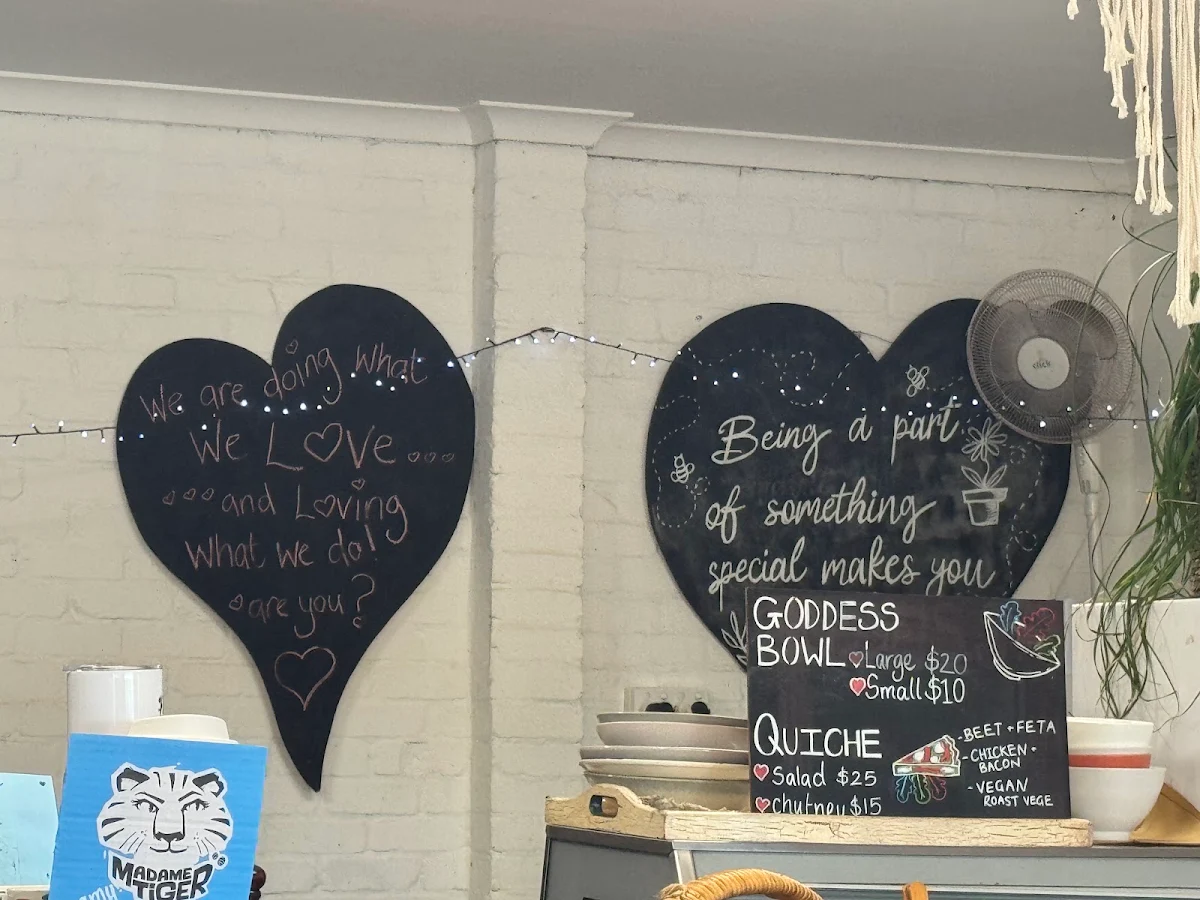 We are doing what
We Love...
...and Loving
what we do!
are you?
Being a part
of something
special makes you
GODDESS
BOWL Large $20
Small $10
QUICHE
Salad $25
chutney $15
-BEET + FETA
-CHICKEN +
BACON
-VEGAN
ROAST VEGE
MADAME
TIGER